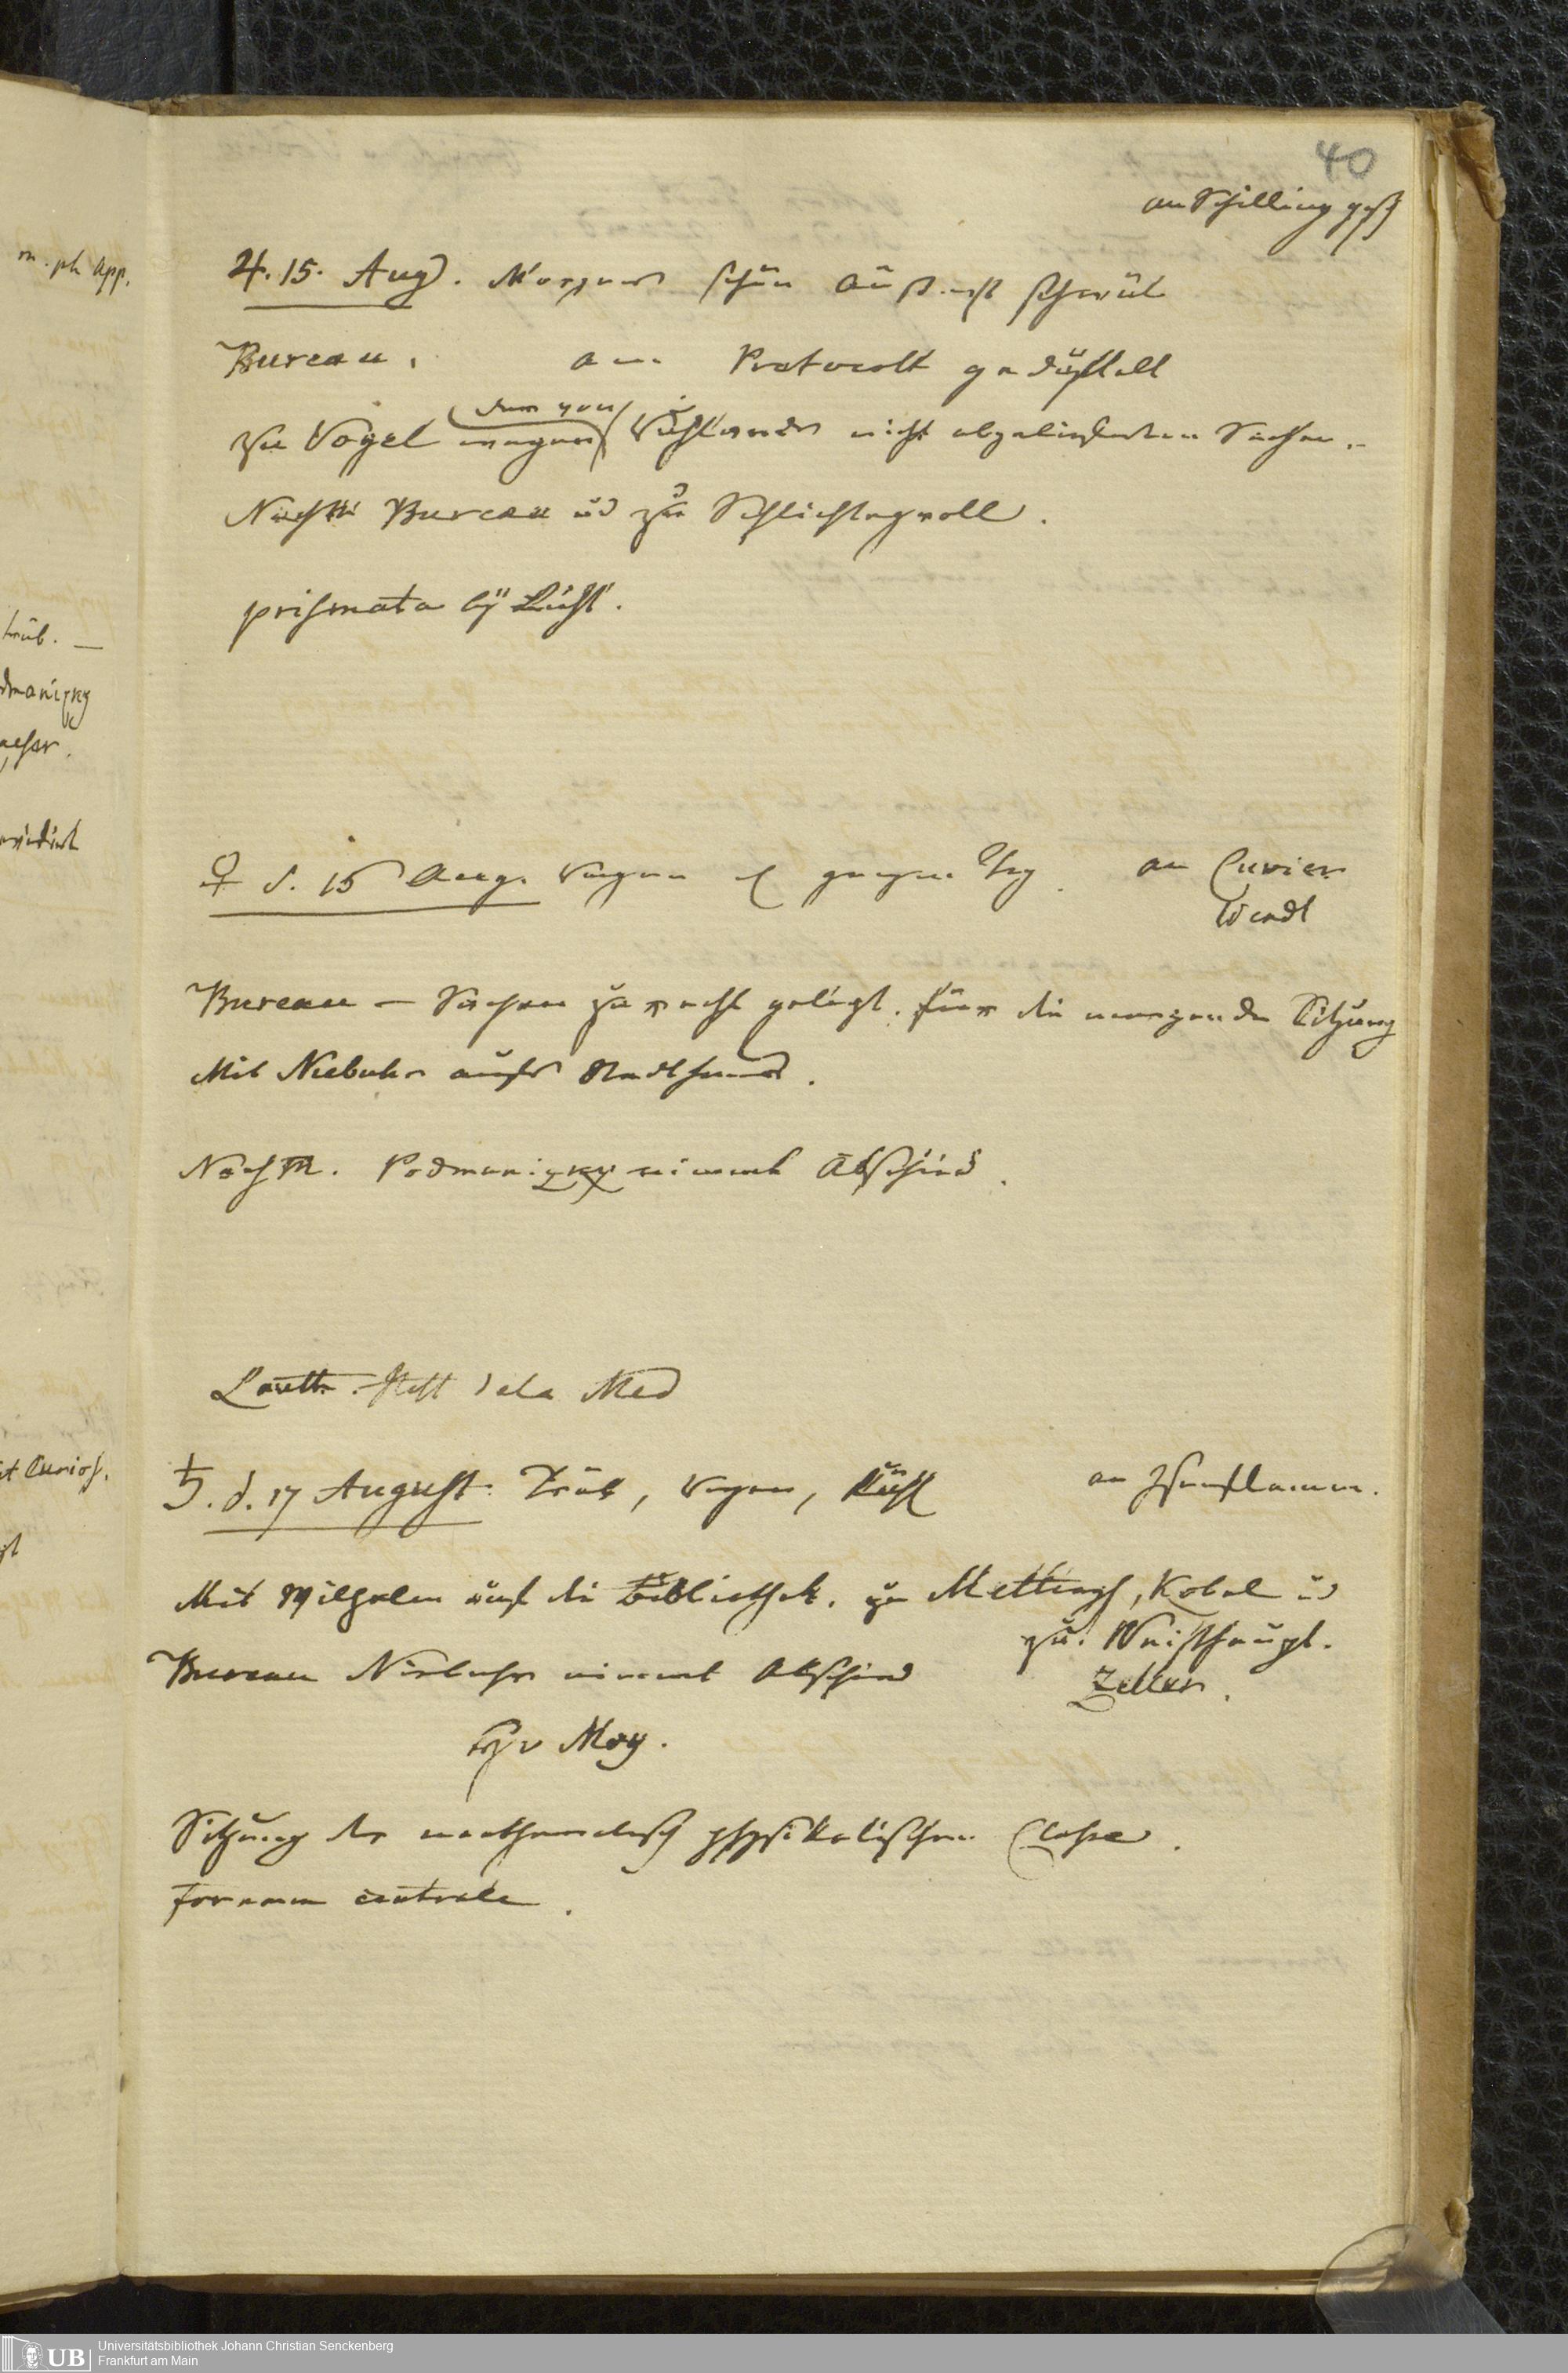 40
an Schilling gesch
♃. 15. Aug. Morgens schön äußerst schwül
Bureau. am Protocoll gedüftelt
zu Vogel wegen den von Wühlander nicht abgelieferten Sachen.
Nachm Bureau und zu Schlichtegroll.
prismata by Licht.
♀ d. 15 Aug. Regen d ganzen Tag. an Cuvier
Wendt
Bureau — Sachen zurecht gelegt. für die morgende Sitzung
Mit Niebuhr aufs Rad
Nachm. Podmanizky nimmt Abschied.
Lauth. Hist de la Med
♄. d. 17 August. Trüb, Regen, kühl an Isenflamm.
Mit Wilhelm auf die Bibliothek. zu Mettingh, Kobel und
zu Weishaupt.
Bureau Niebuhr nimmt Abschied
Zeller.
H v Moy.
Sitzung der mathematisch physikalischen Classe.
Foramen centrale.
m. ph App.
trüb. —
dmanizky
t Curios.
UB
Universitätsbibliothek Johann Christian Senckenberg
Frankfurt am Main